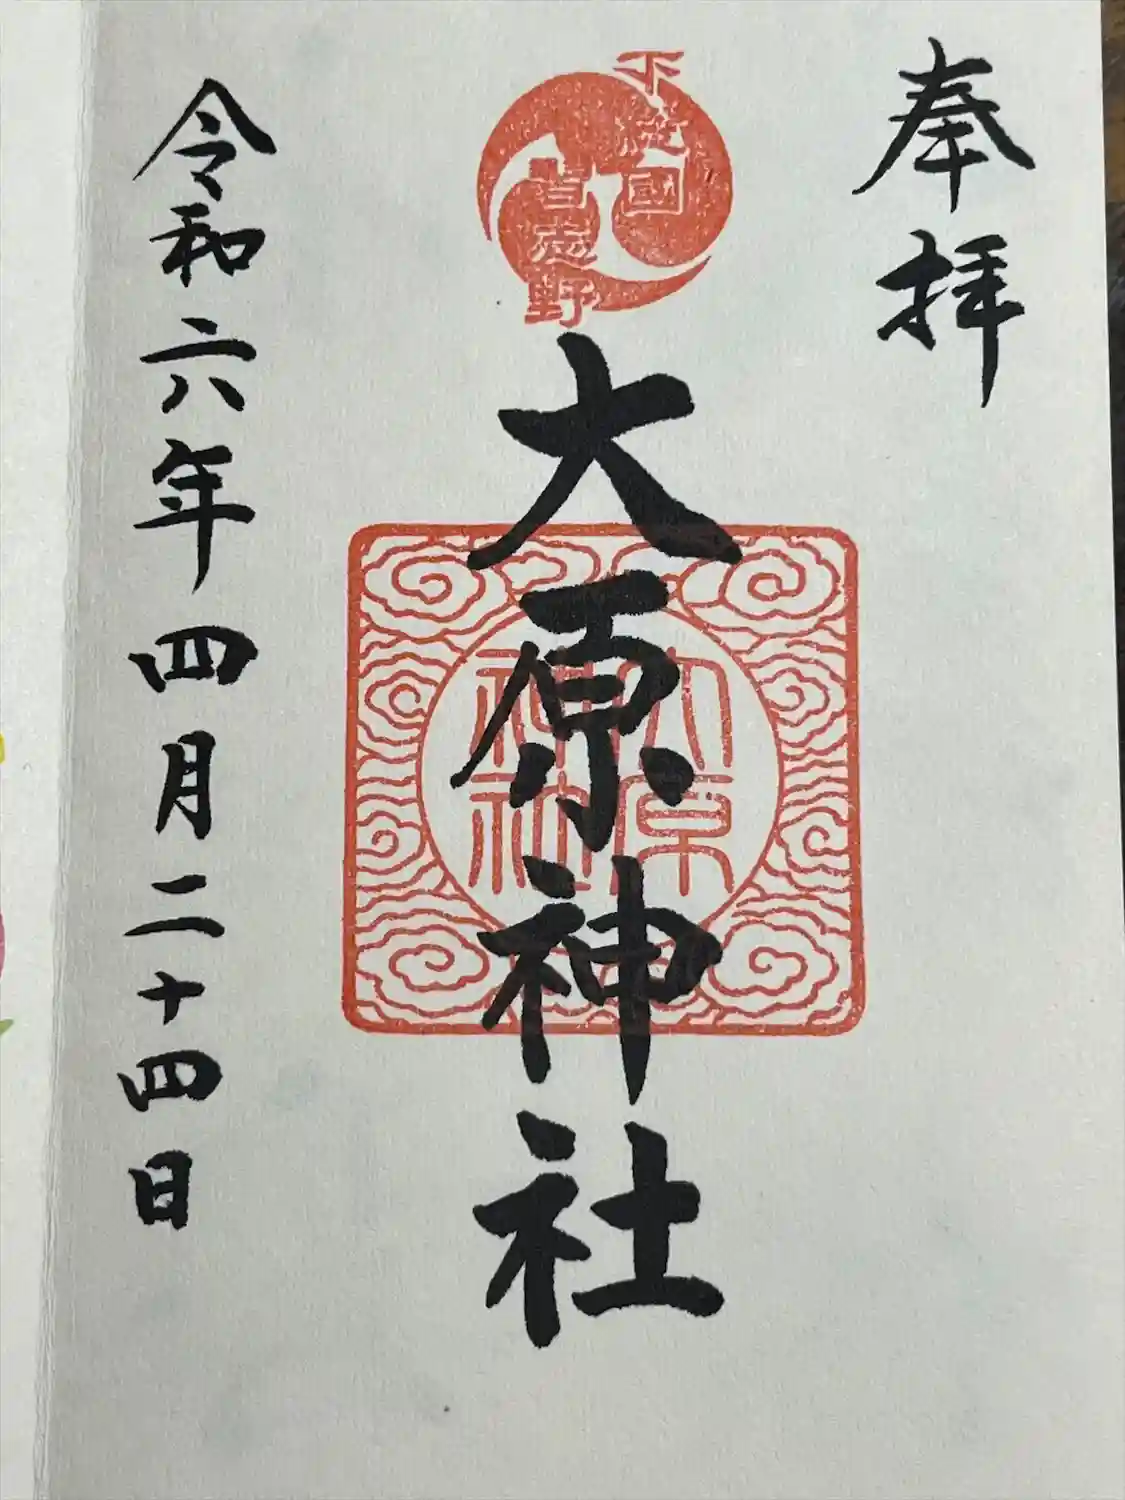 奉拝
下総國
習志野
大原神社
大原
神社
令和六年四月二十四日